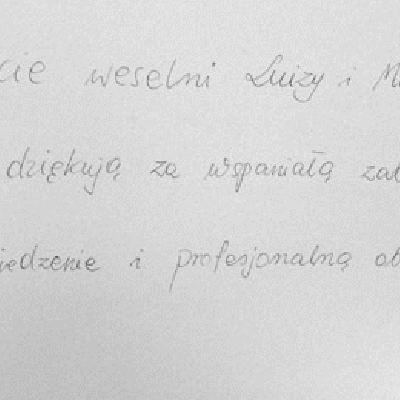 cie weselni Luizy i M
dziękują za wspaniałą zab
iedzenie i profesjonalną ob